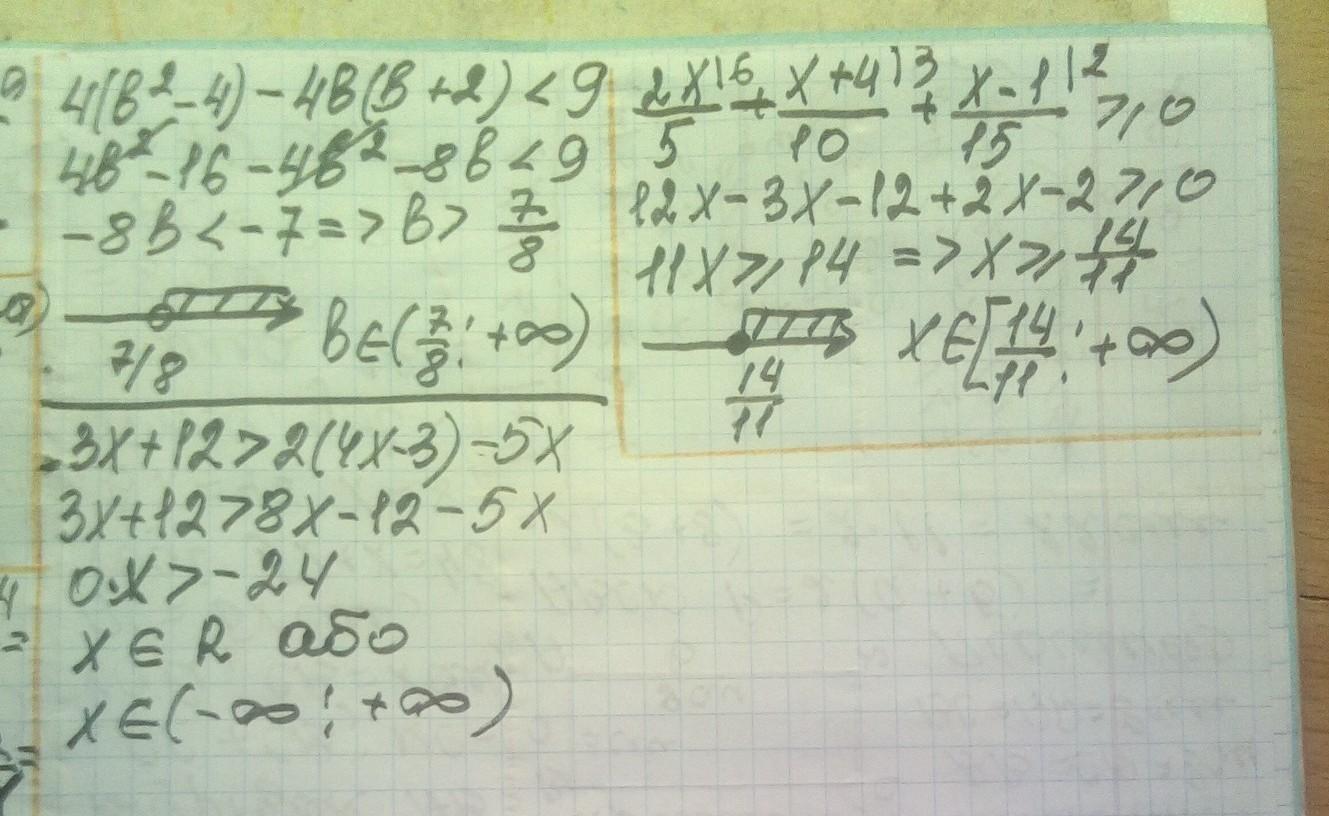 4(b²-4)-4b(b+2)<9
4b²-16-4b²-8b<9
-8b<-7=>b>7/8
7/8
b∈(7/8; +∞)
3x+12>2(4x-3)-5x
3x+12>8x-12-5x
0·x>-24
x∈R або
x∈(-∞; +∞)
2x|6/5 + x+4|3/10 + x-1|2/15 ≥0
12x-3x-12+2x-2≥0
11x≥14 =>x≥14/11
14/11
x∈[14/11; +∞)